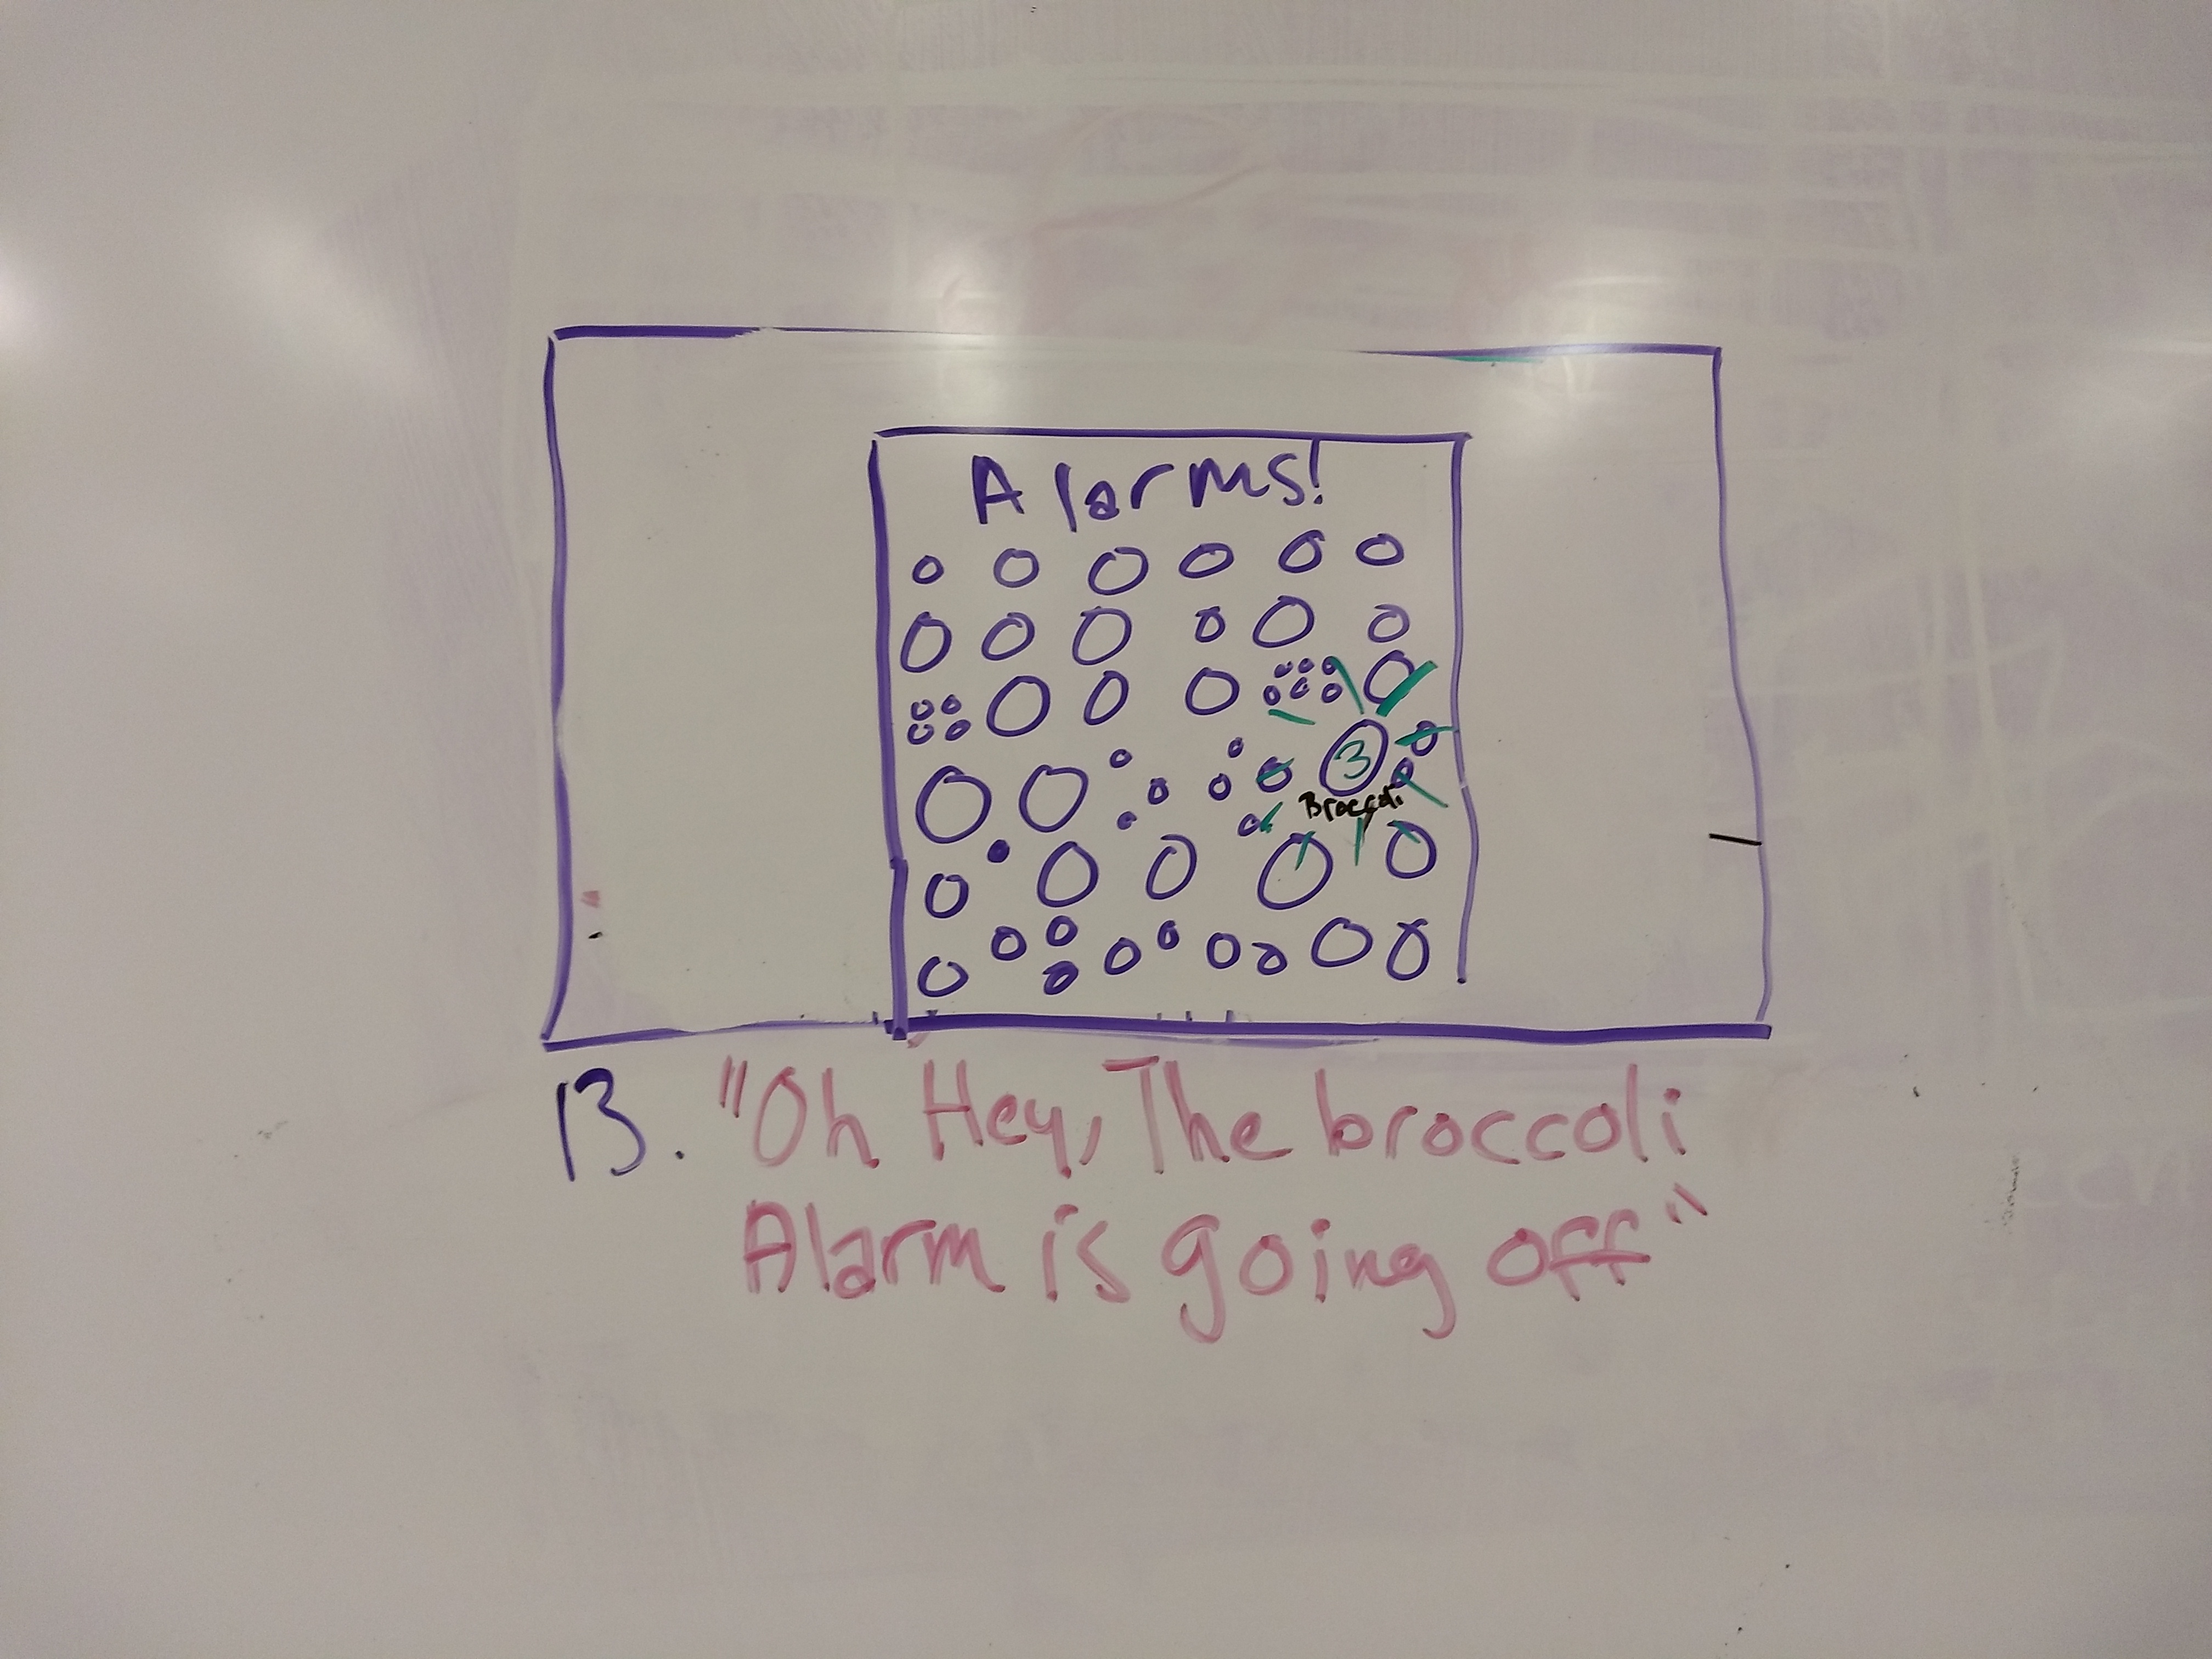 Alarms!
3
Broccoli
13. "Oh Hey, The broccoli
Alarm is going off"